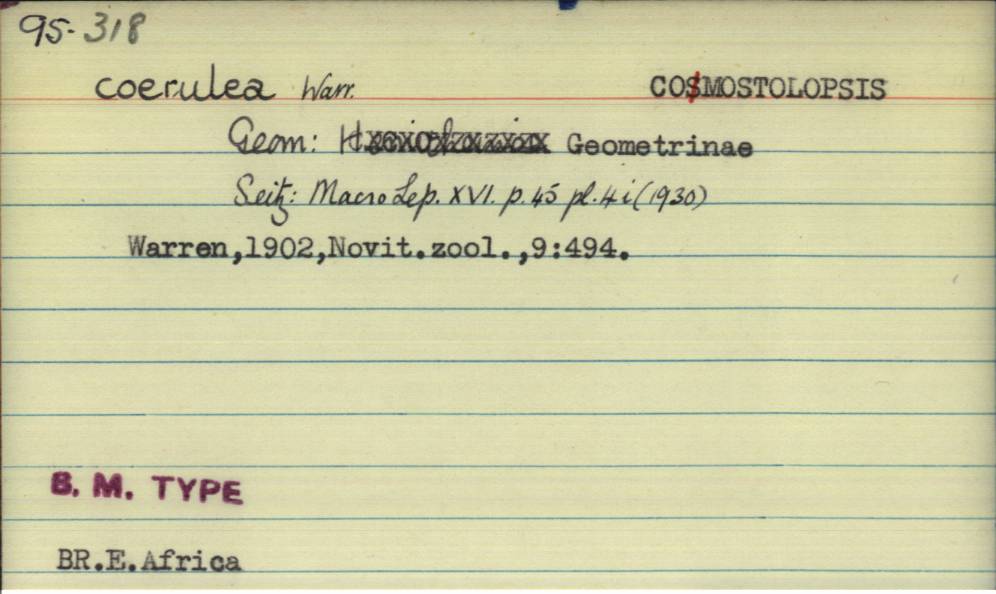 95-318
coerulea Warr. COSMOSTOLOPSIS
Geom: Geometrinae
Seitz: Macro Lep. XVI. p. 45 pl. 4i (1930)
Warren,1902,Novit.zool.,9:494.
B. M. TYPE
BR.E.Africa